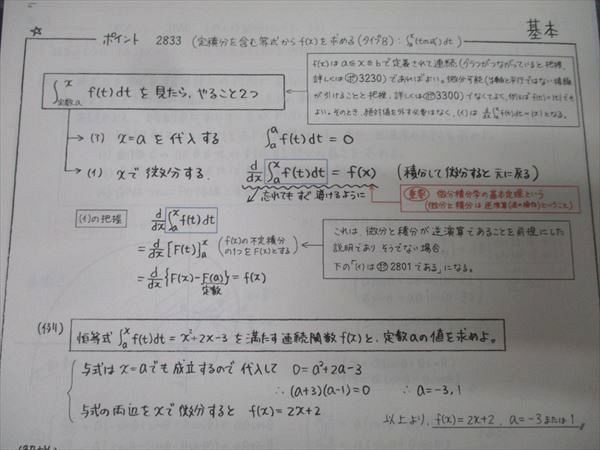 ☆ ポイント 2833 (定積分を含む等式から f(x) を求める (タイプB) : ∫ₐˣ f(t)dt)
基本
∫ₐˣ f(t)dt を見たら、やること2つ
定数a
f(x)は a≦x≦b で定義されて連続 (グラフがつながっていると把握、
3230) であればよい。微分可能
が引けることと把握、詳しくは 3300) でなくてよく、例えば f(t)=|t| でも
よい。そのとき、絶対値を外す必要はなく、(イ)は d/dx ∫ₐˣ |t|dt = |x| となる。
→ (ア) x=a を代入する ∫ₐᵃ f(t)dt = 0
→ (イ) xで微分する. d/dx ∫ₐˣ f(t)dt = f(x) (積分して微分すると元に戻る)
忘れてもすぐ導けるように
重要 微分積分学の基本定理という
(微分と積分は逆演算(逆の操作)ということ)
(イ)の把握 d/dx ∫ₐˣ f(t)dt
= d/dx [F(t)]ₐˣ (f(x)の不定積分の1つをF(x)とする)
= d/dx {F(x)-F(a)} = f(x)
定数
これは、微分と積分が逆演算であることを前提にした
説明であり そうでない場合、
下の「(イ)は 2801 である」になる。
(例)
恒等式 ∫ₐˣ f(t)dt = x²+2x-3 を満たす連続関数 f(x) と、定数aの値を求めよ。
与式は x=a でも成立するので 代入して 0=a²+2a-3
∴ (a+3)(a-1)=0 ∴ a=-3, 1
与式の両辺をxで微分すると f(x)=2x+2
以上より、f(x)=2x+2, a=-3 または 1